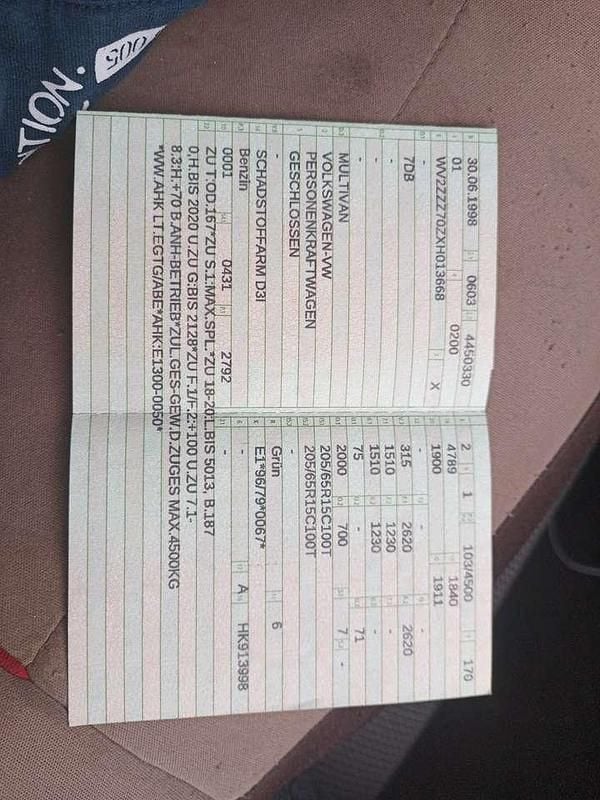 30.06.1998 0603 4450330
01 0200
WV2ZZZ70ZXH013668 X
-
7DB
-
-
-
MULTIVAN
VOLKSWAGEN-VW
PERSONENKRAFTWAGEN
GESCHLOSSEN
-
SCHADSTOFFARM D3I
Benzin
0001 0431 2792
ZU T:OD.167*ZU S.1:MAX.SPL.*ZU 18-20:L.BIS 5013, B.187
0,H.BIS 2020 U.ZU G:BIS 2128*ZU F.1/F.2:+100 U.ZU 7.1-
8.3:H.+70 B.ANH-BETRIEB*ZUL.GES-GEW.D.ZUGES MAX.4500KG
*WW.AHK LT.EGTG/ABE*AHK:E1300-0050*
2 1 103/4500 170
4789 1840
1900 1911
- - -
315 2620 2620
1510 1230 -
1510 1230 -
75 - 71
2000 700 7 -
205/65R15C100T
205/65R15C100T
-
Grün 6
E1*96/79*0067*
- A HK913998
-
005